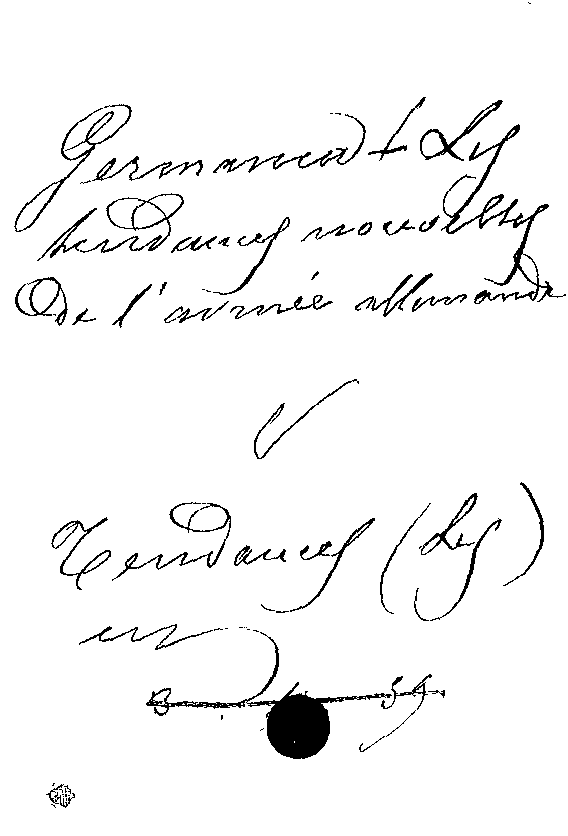 Germanicus + Les
tendances nouvelles
de l'armée allemande
Tendances (Les)
in